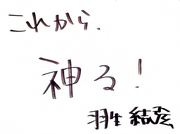 これから、
神る！
羽生 結弦